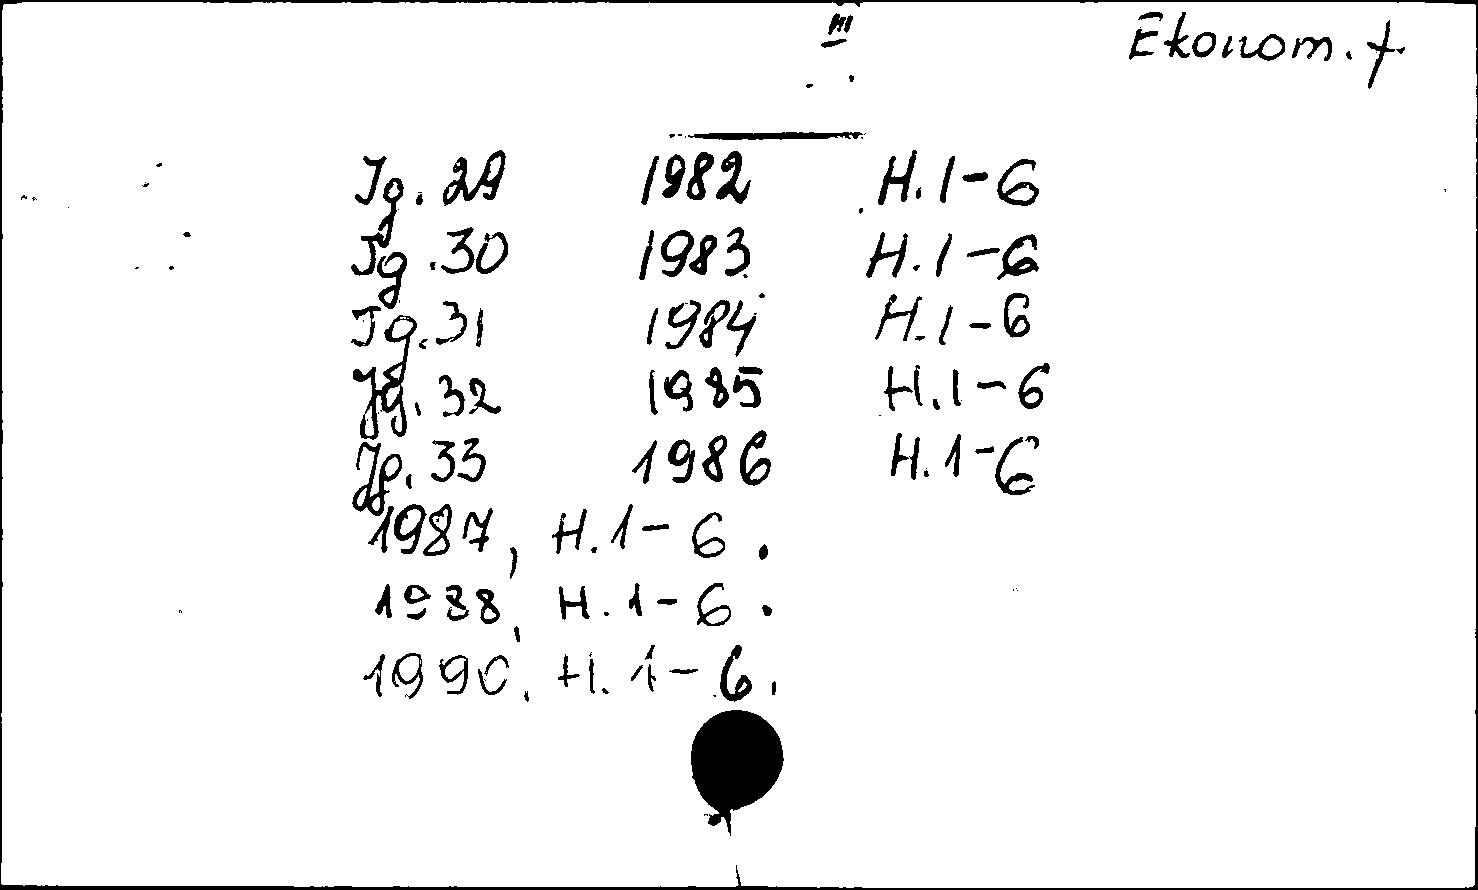 III
Ekonom. f
Jg. 29 1982 H. 1-6
Jg. 30 1983 H. 1-6
Jg. 31 1984 H. 1-6
Jg. 32 1985 H. 1-6
Jg. 33 1986 H. 1-6
1987, H. 1-6.
1988, H. 1-6.
1990. H. 1-6.